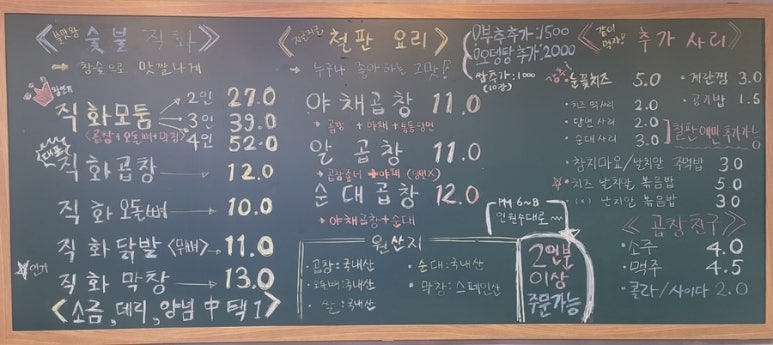 불맛왕 숯불 직화
→ 참숯으로 맛깔나게
직화모둠 → 2인 27.0
→ 3인 39.0
→ 4인 52.0
<곱창+오돌뼈+막창>
대표
직화곱창 → 12.0
직화오돌뼈 → 10.0
직화닭발<무뼈> → 11.0
☆인기
직화막창 → 13.0
<소금, 데리, 양념 中 택 1>
철판 요리
→ 누구나 좋아하는 그맛!
야채곱창 11.0
• 곱창 + 야채 + 당면
알곱창 11.0
순대곱창 12.0
→ 야채곱창+순대
원산지
• 곱창:국내산
• 순대:국내산
• 오돌뼈:국내산
• 막창:스페인산
• 쌀:국내산
PM 6~8
인원수대로~
2인분
이상
주문가능
부추추가:1500
오뎅탕추가:2000
쌈추가:1000
(10장)
같이
먹어요!!
추가 사리
눈꽃치즈 5.0
• 치즈 떡사리 2.0
• 당면사리 2.0
• 순대사리 3.0
철판에만 추가가능
• 계란찜 3.0
• 공기밥 1.5
• 참치마요/날치알 주먹밥 3.0
☆ 치즈 날치알 볶음밥 5.0
• (x) 날치알 볶음밥 3.0
곱창친구
• 소주 4.0
• 맥주 4.5
• 콜라/사이다 2.0